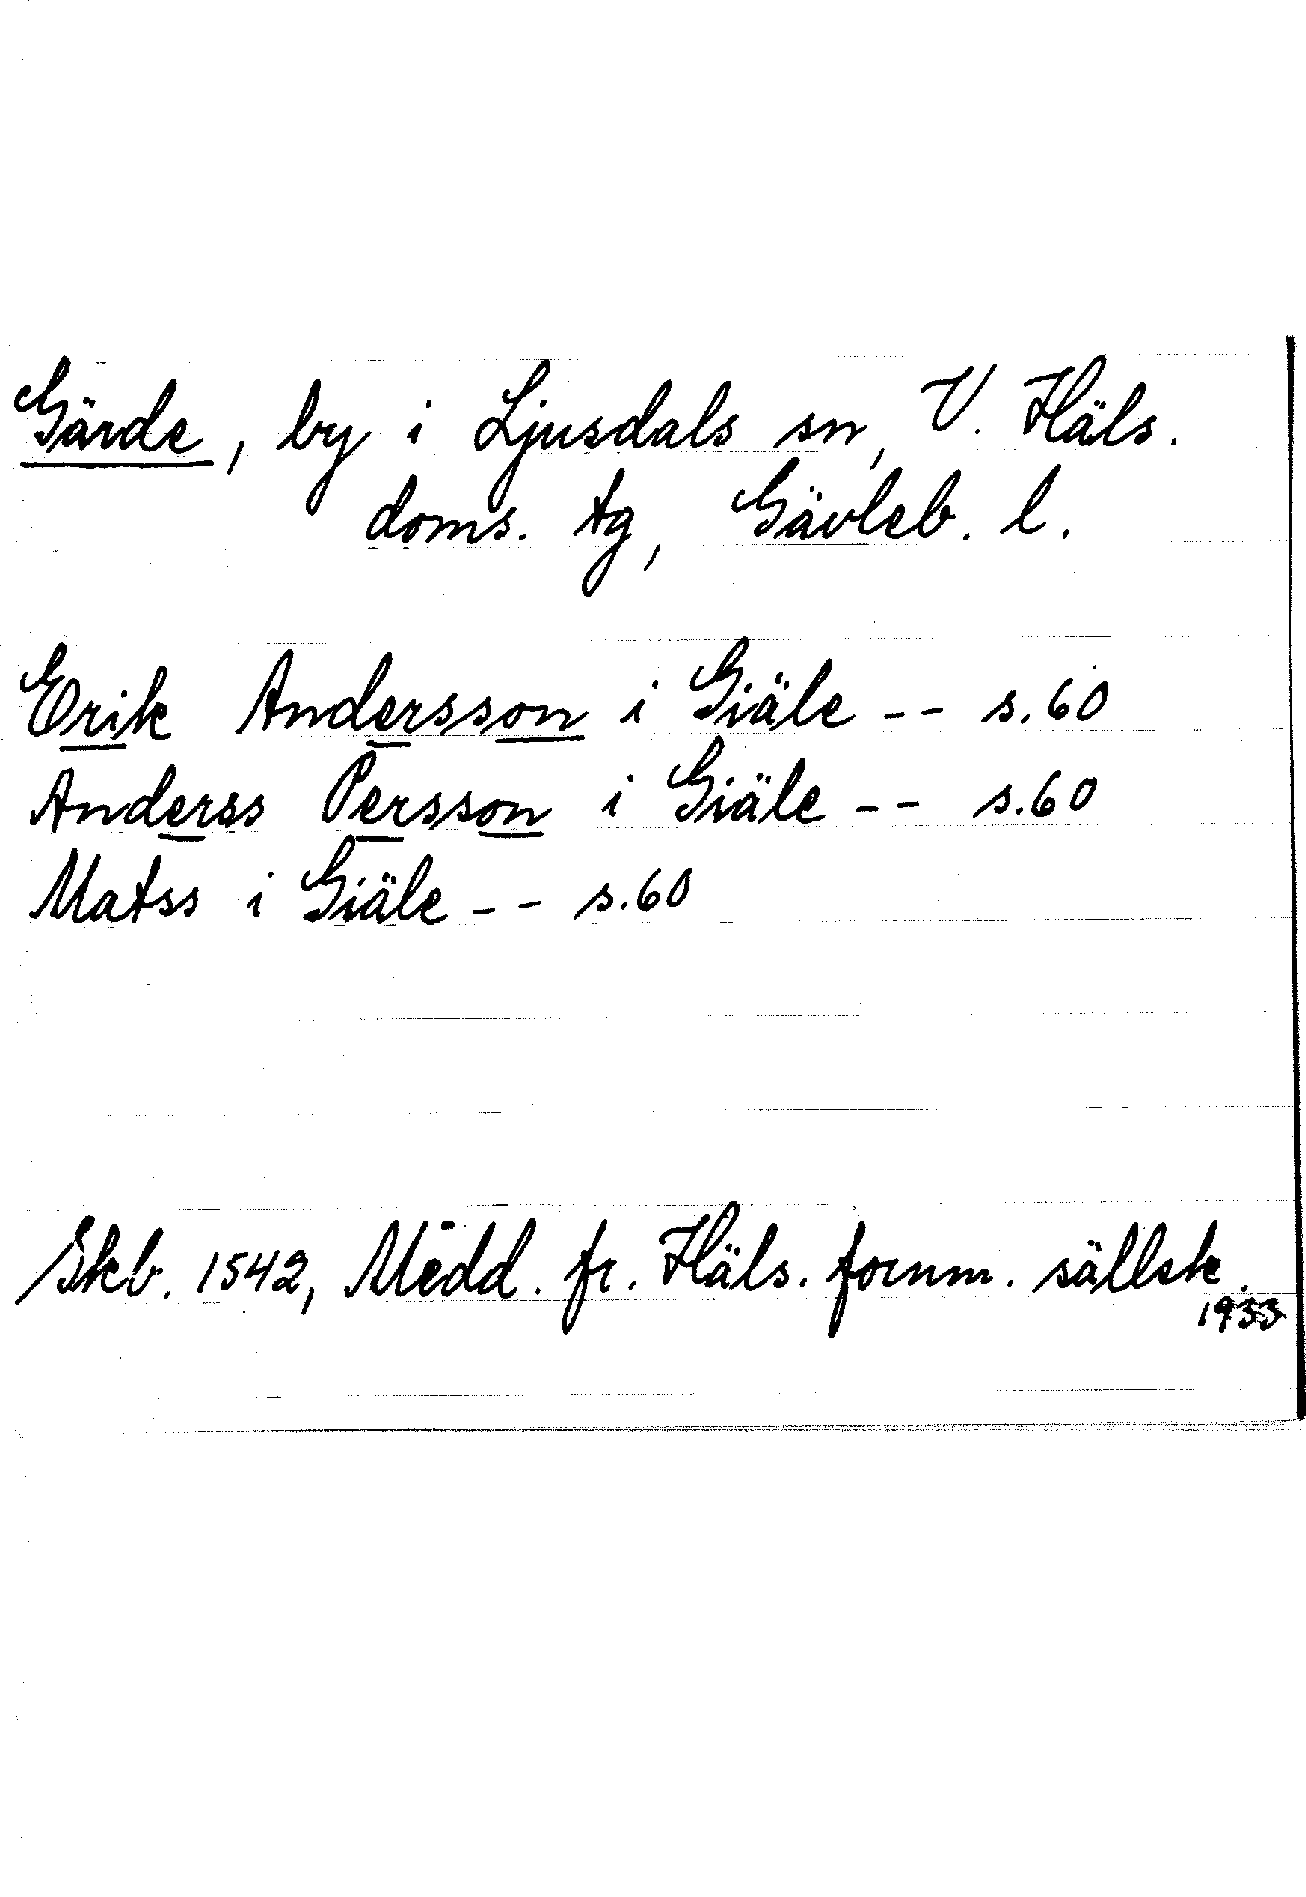 Gärde, by i Ljusdals sn, V. Häls.
doms. tg, Gävleb. l.
Erik Andersson i Giäle -- s.60
Anderss Persson i Giäle -- s.60
Matss i Giäle -- s.60
Skb. 1542, Medd. fr. Häls. fornm. sällsk.
1933